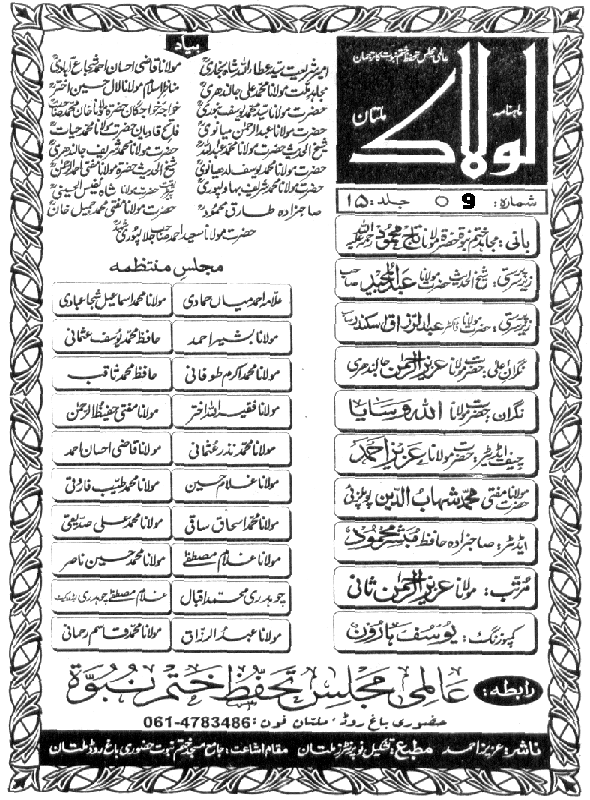 عالمی مجلس تحفظ ختم نبوت کا ترجمان
ماہنامہ
لولاک
ملتان
شمارہ: 9 ○ جلد: ۱۵
بانی: مجاہد ختم نبوۃ حضرۃ مولانا تاج محمود رحمۃ اللہ علیہ
زیرسرپرستی: شیخ الحدیث حضرت مولانا عبدالمجید صاحب
زیرسرپرستی: حضرت مولانا ڈاکٹر عبدالرزاق سکندر صاحب
نگران اعلیٰ: حضرت مولانا عزیز الرحمن جالندھری
نگران: حضرت مولانا اللہ وسایا
چیف ایڈیٹر: حضرت مولانا عزیز احمد
حضرت مولانا مفتی محمد شہاب الدین پوپلزئی
ایڈیٹر: صاحبزادہ حافظ مبشر محمود
مرتب: مولانا عزیز الرحمن ثانی
کمپوزنگ: یوسف ہارون
بیاد
امیر شریعت سید عطاء اللہ شاہ بخاری
مولانا قاضی احسان احمد شجاع آبادی
مجاہد ملت مولانا محمد علی جالندھری
مناظر اسلام مولانا لال حسین اختر
حضرت مولانا سید محمد یوسف بنوری
خواجہ خواجگان حضرۃ مولانا خان محمد صاحب
حضرت مولانا عبدالرحمن میانوی
فاتح قادیان حضرت مولانا محمد حیات
شیخ الحدیث حضرت مولانا محمد عبداللہ
حضرت مولانا محمد شریف جالندھری
حضرت مولانا محمد یوسف لدھیانوی
شیخ الحدیث حضرۃ مولانا مفتی احمد الرحمن
حضرت مولانا محمد شریف بہاولپوری
حضرت مولانا شاہ نفیس الحسینی
صاحبزادہ طارق محمود
حضرت مولانا مفتی محمد جمیل خان
حضرت مولانا سعید احمد صاحب جلالپوری
مجلس منتظمہ
علامہ احمد میاں حمادی
مولانا محمد اسماعیل شجاعبادی
مولانا بشیر احمد
حافظ محمد یوسف عثمانی
مولانا محمد اکرم طوفانی
حافظ محمد ثاقب
مولانا فقیر اللہ اختر
مولانا مفتی حفیظ الرحمن
مولانا محمد نذر عثمانی
مولانا قاضی احسان احمد
مولانا غلام حسین
مولانا محمد طیب فاروقی
مولانا محمد اسحاق ساقی
مولانا محمد علی صدیقی
مولانا غلام مصطفےٰ
مولانا محمد حسین ناصر
چوہدری محمد اقبال
غلام مصطفےٰ چوہدری ایڈووکیٹ
مولانا عبدالرزاق
مولانا محمد قاسم رحمانی
رابطہ: عالمی مجلس تحفظ ختم نبوۃ
حضوری باغ روڈ، ملتان فون: 061-4783486
ناشر: عزیز احمد مطبع: تشکیل نو پرنٹرز ملتان مقام اشاعت: جامع مسجد ختم نبوت حضوری باغ روڈ ملتان